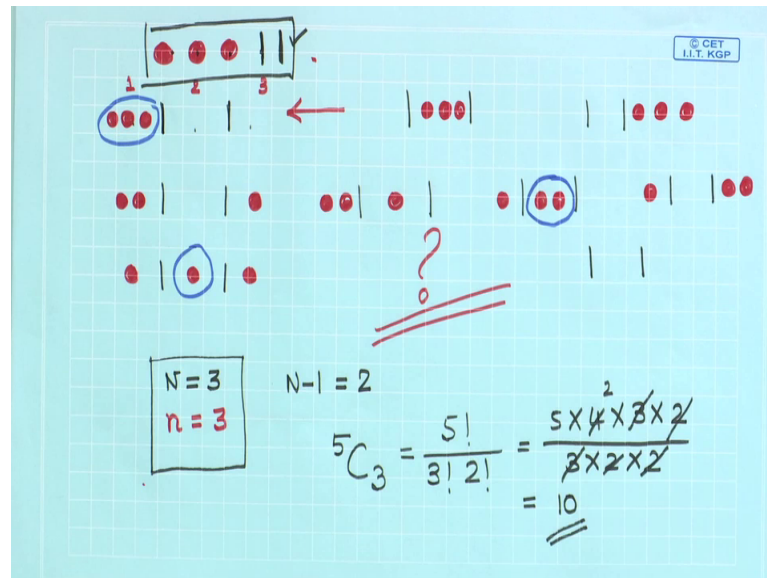 © CET
I.I.T. KGP
1 2 3
?
N = 3
n = 3
N-1 = 2
⁵C₃ = 5! / 3! 2! = 5 X 4 X 3 X 2 / 3 X 2 X 2
2
= 10